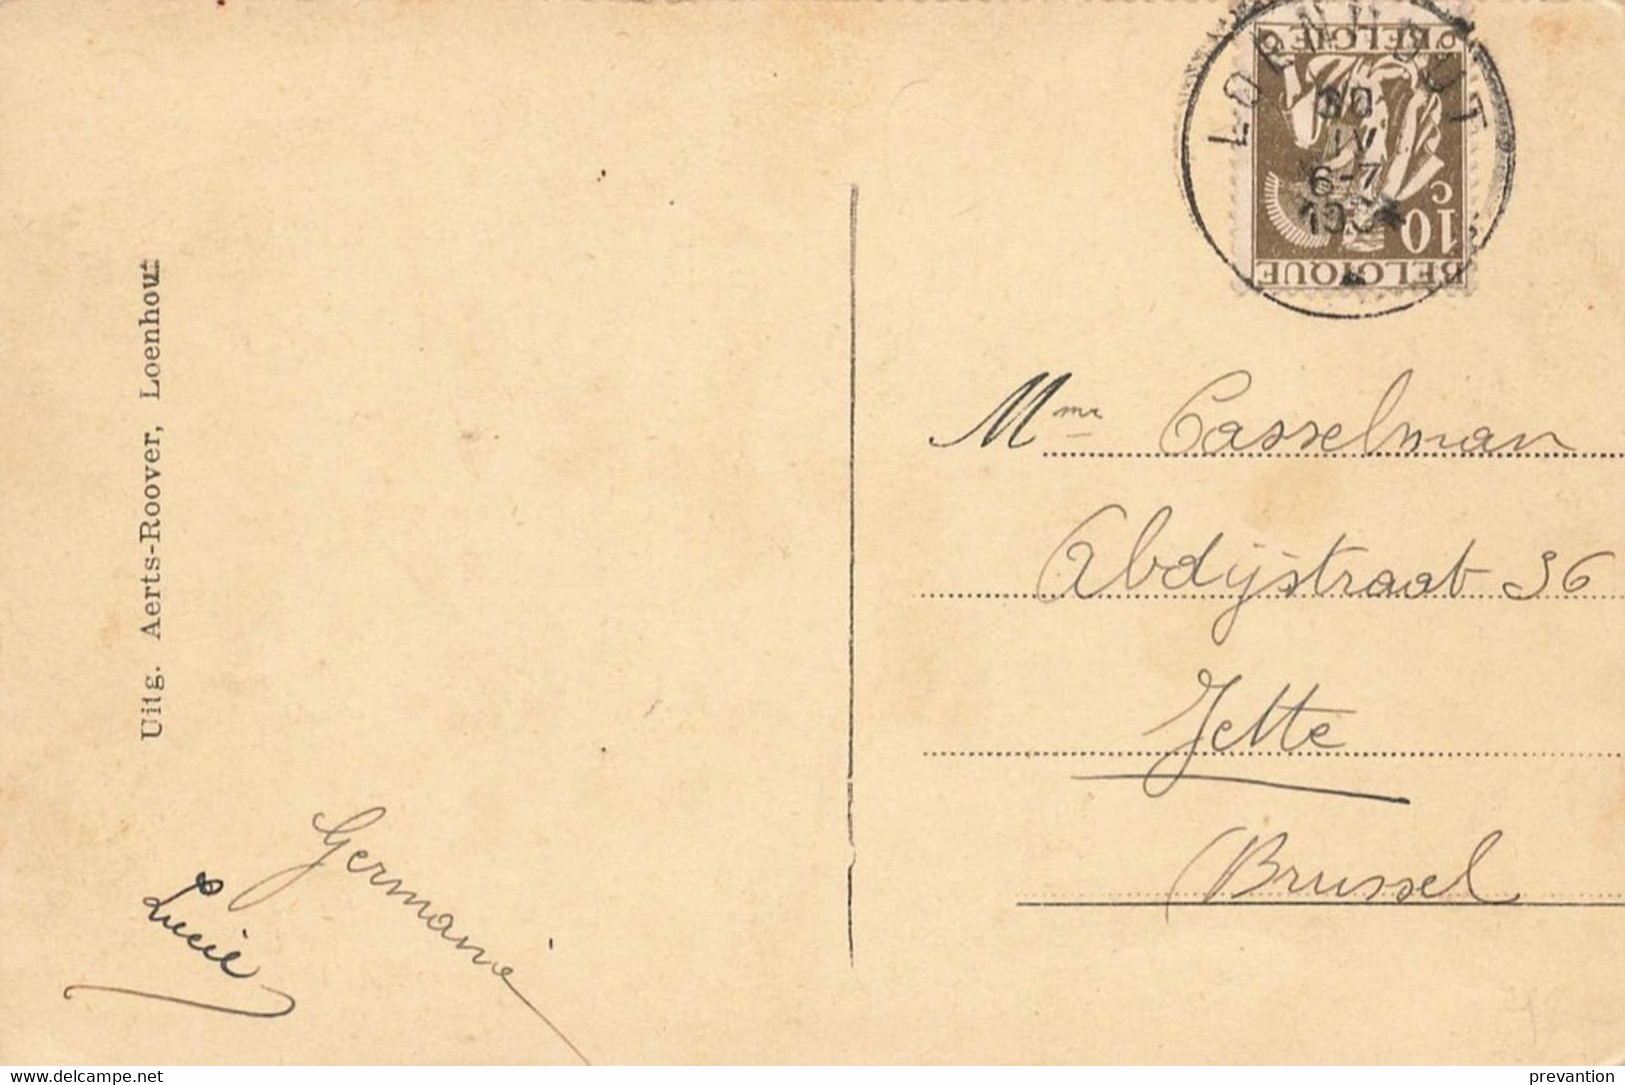 LOENHOUT
30
IV
6-7
193
BELGIE
10 c
BELGIQUE
Uitg. Aerts-Roover, Loenhout
Mme Casselman
Abdijstraat 36
Jette
Brussel
Germaine
Lucie
www.delcampe.net
prevantion